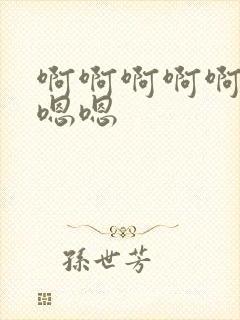 啊啊啊啊啊
嗯嗯
孫世芳